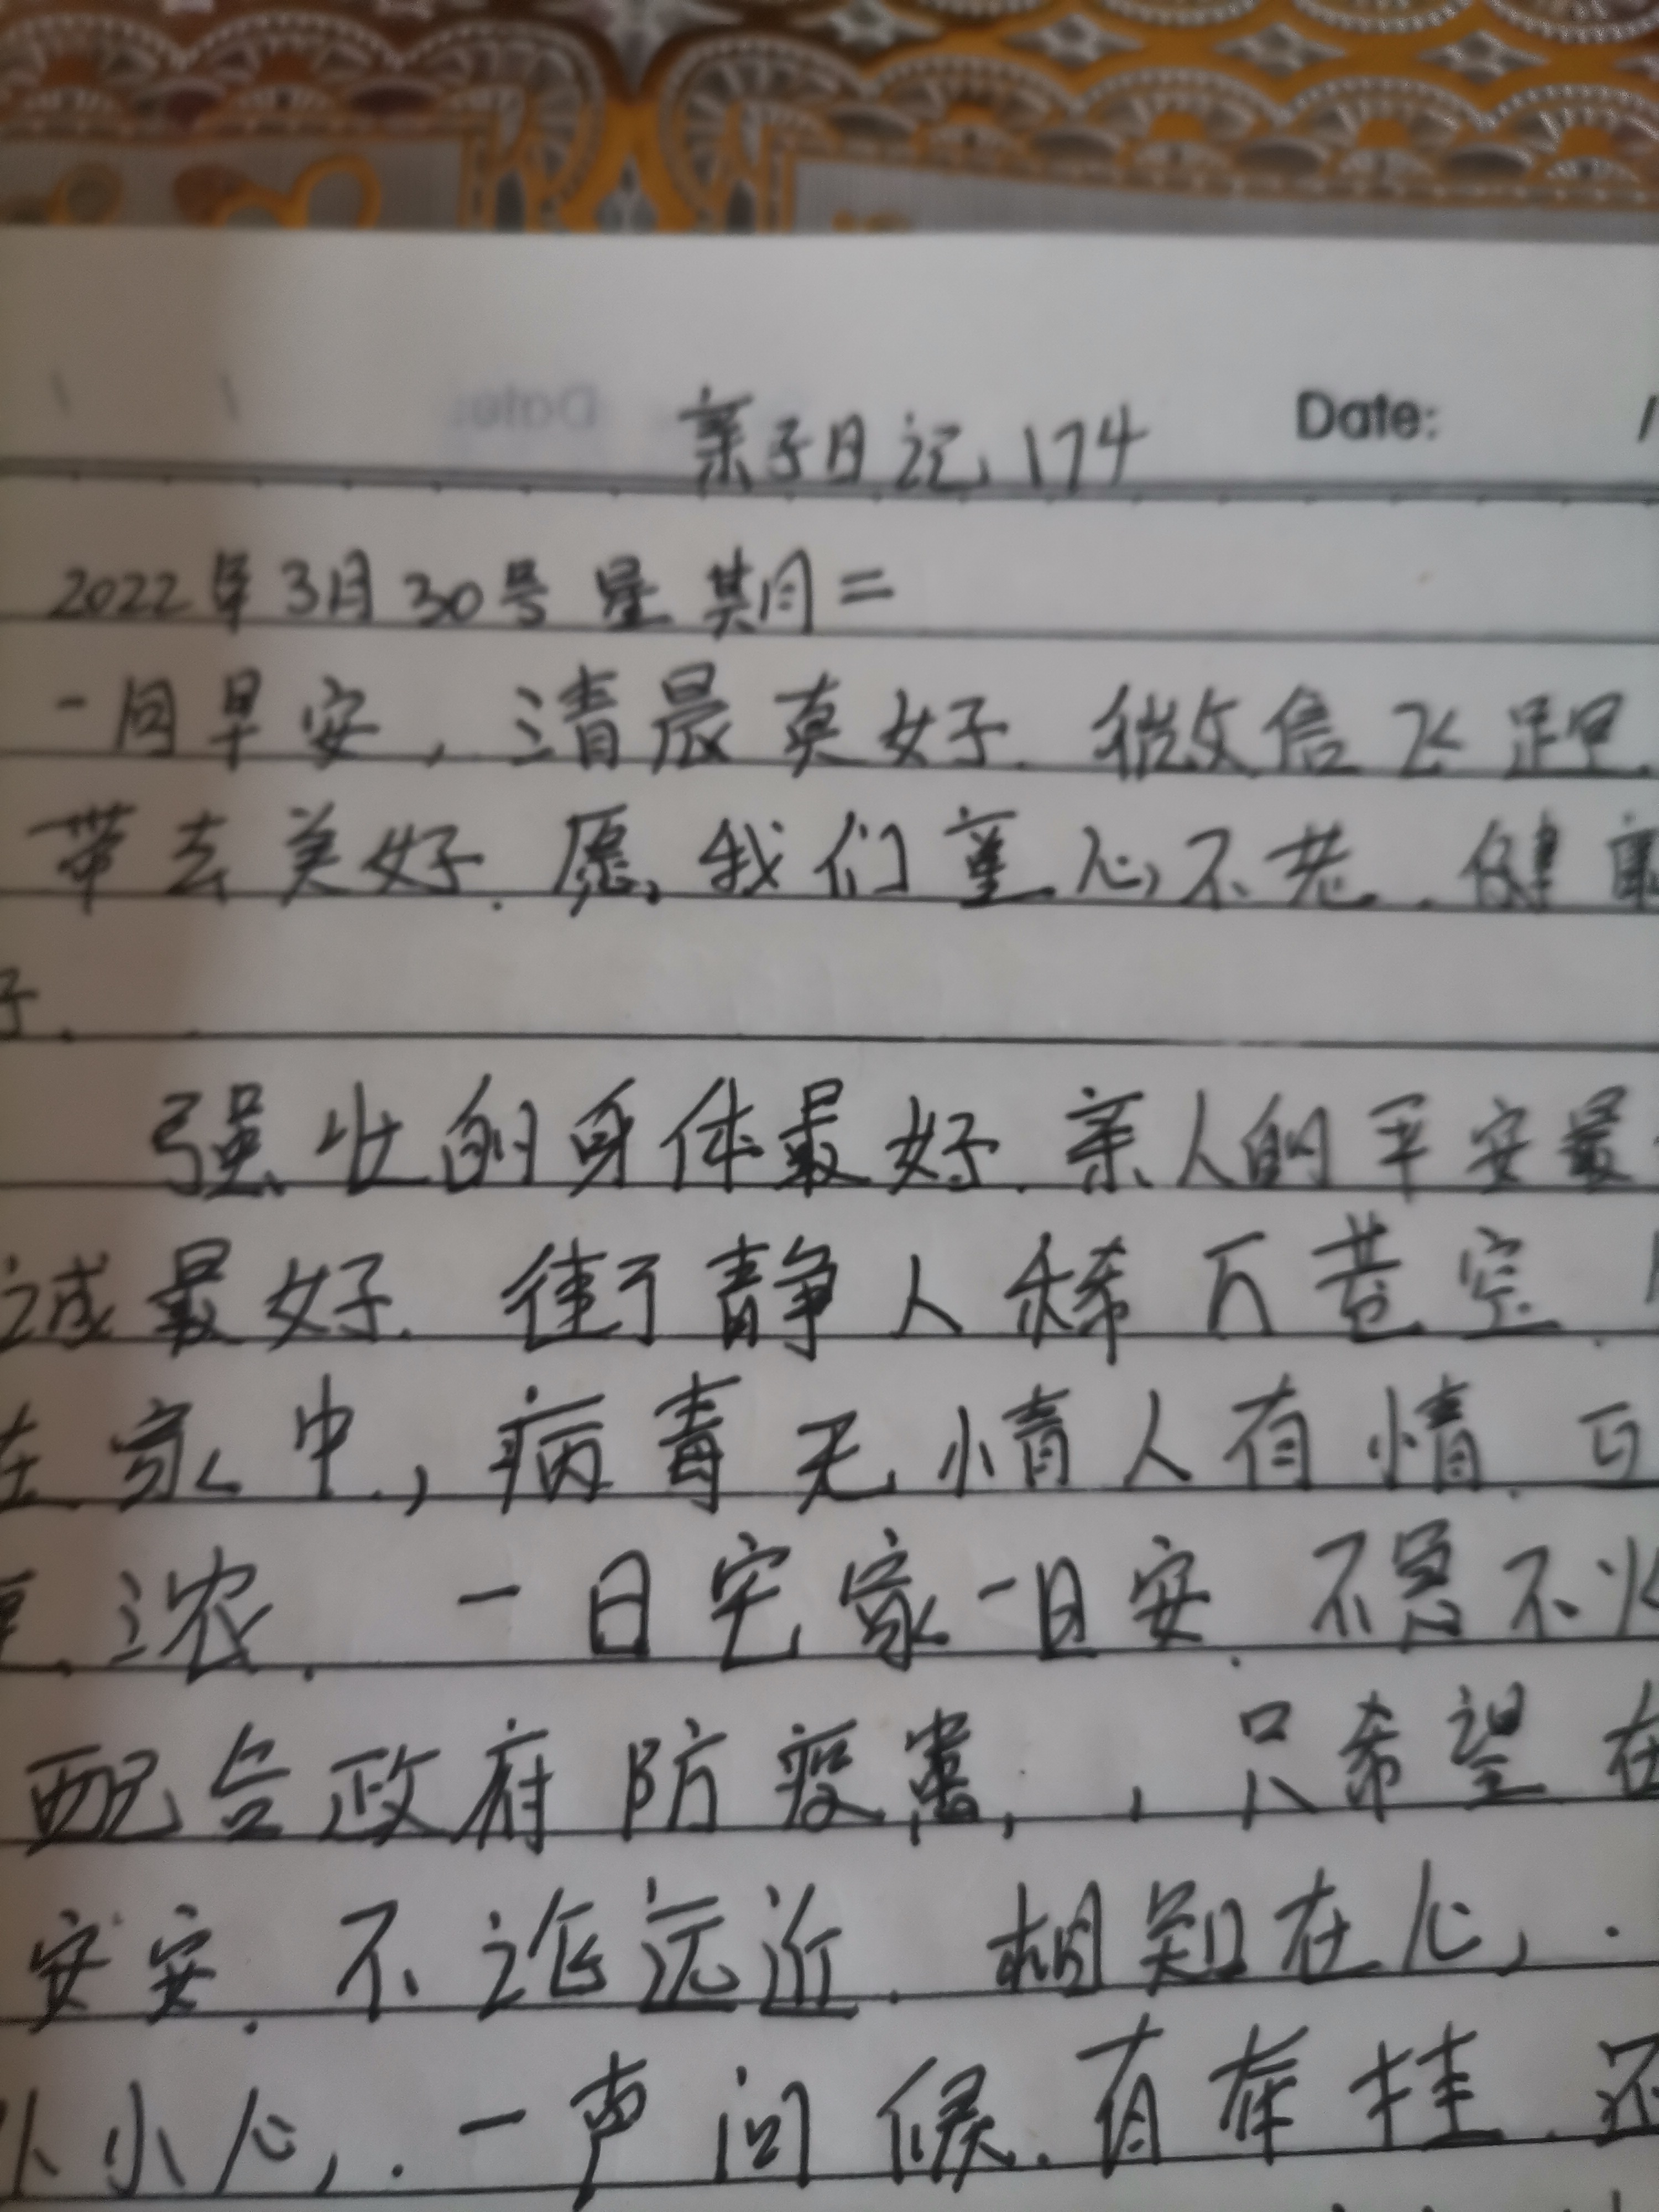 亲子日记174 Date:
2022年3月30号星期二
一句早安，清晨真好.微信飞跑.
带去美好.愿我们童心不老.健康
子.
强壮的身体最好.亲人的平安最
诚最好.街静人稀万巷空.
在家中，病毒无情人有情.
浓.一日宅家一日安.不急不火
配合政府防疫患，，只希望在
安安.不论远近.相知在心，.
小小心，.一声问候.有牵挂.还